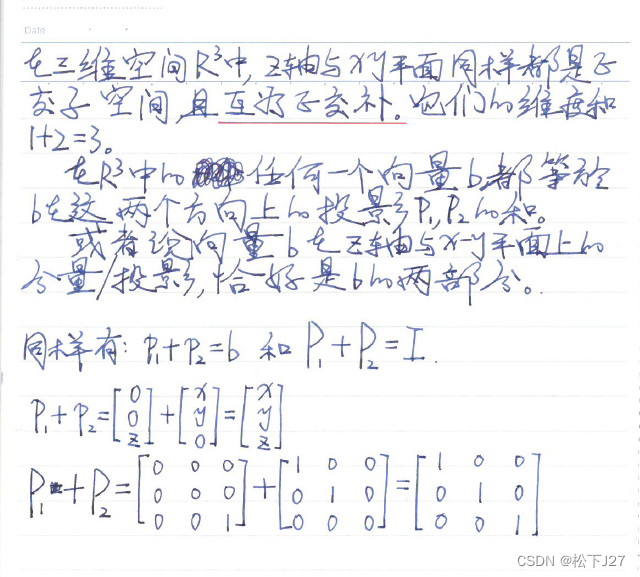 Date
在三维空间R³中,z轴与xy平面同样都是正
交子空间,且互为正交补。它们的维度和
1+2=3。
在R³中的任何一个向量b,都等於
b在这两个方向上的投影P₁,P₂的和。
或者说向量b在z轴与x-y平面上的
分量/投影,恰好是b的两部分。
同样有: p₁+p₂=b 和 P₁+P₂=I.
p₁+p₂=[0 0 z]+[x y 0]=[x y z]
P₁+P₂=[0 0 0; 0 0 0; 0 0 1]+[1 0 0; 0 1 0; 0 0 0]=[1 0 0; 0 1 0; 0 0 1]
CSDN @松下J27